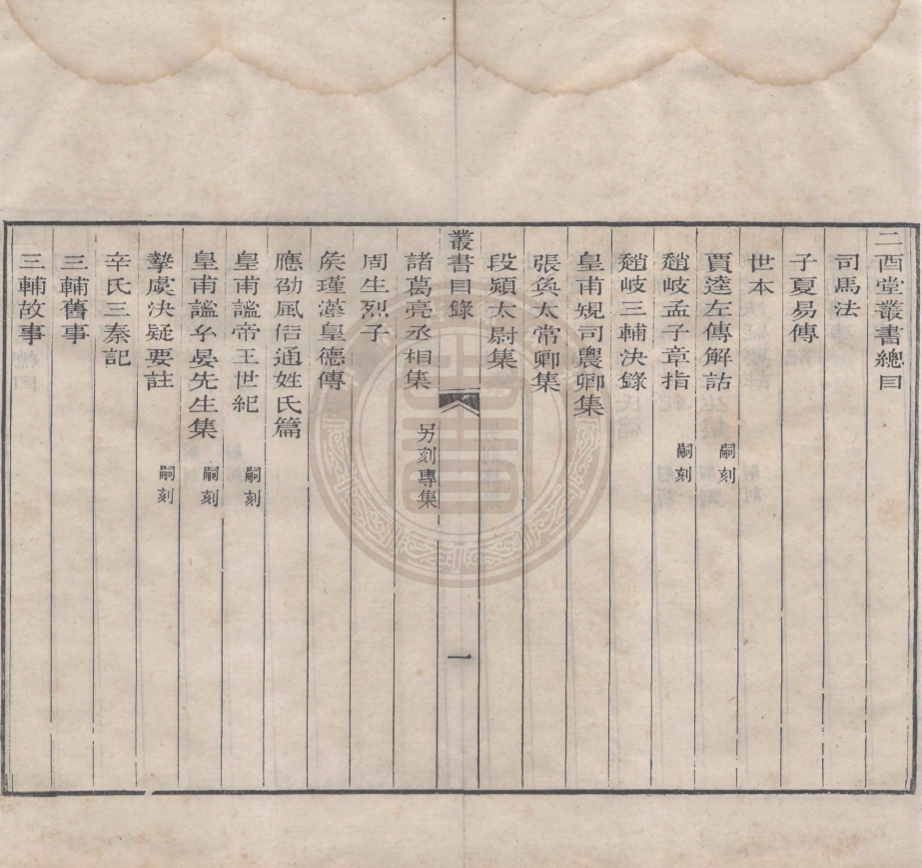 二酉堂叢書總目
司馬法
子夏易傳
世本
賈逵左傳解詁 嗣刻
趙岐孟子章指 嗣刻
趙岐三輔決錄
皇甫規司農卿集
張奐太常卿集
段熲太尉集
叢書目錄 一
諸葛亮丞相集 另刻專集
周生烈子
矦瑾漢皇德傳
應劭風俗通姓氏篇
皇甫謐帝王世紀 嗣刻
皇甫謐玄晏先生集 嗣刻
摯虞決疑要註 嗣刻
辛氏三秦記
三輔舊事
三輔故事